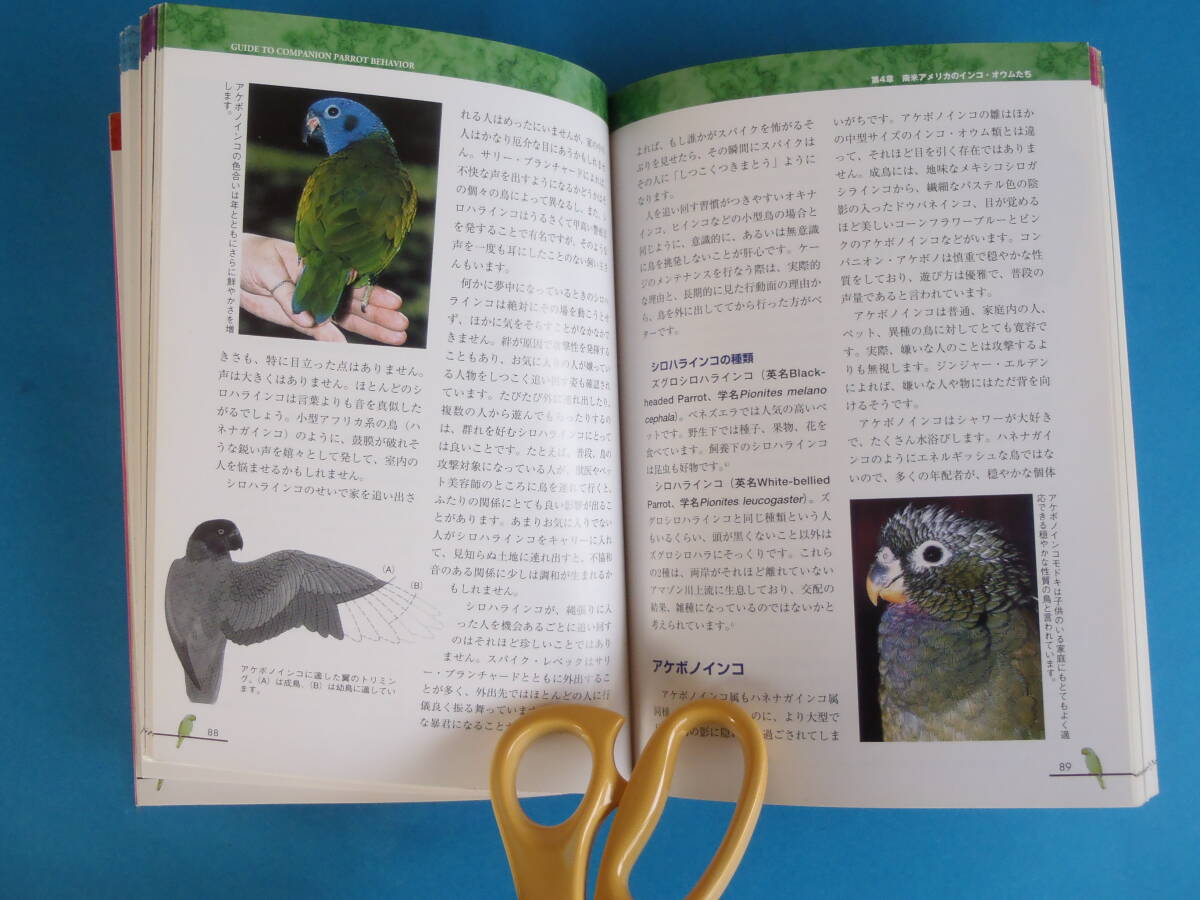 GUIDE TO COMPANION PARROT BEHAVIOR
アケボノインコの色合いは年とともにさらに鮮やかさを増
します。
きさも、特に目立った点はありません。
声は大きくはありません。ほとんどのシ
ロハラインコは言葉よりも音を真似した
がるでしょう。小型アフリカ系の鳥（ハ
ネナガインコ）のように、鼓膜が破れそ
うな鋭い声を嬉々として発して、室内の
人を悩ませるかもしれません。
シロハラインコのせいで家を追い出さ
(A)
(B)
アケボノインコに適した翼のトリミン
グ。（A）は成鳥、（B）は幼鳥に適してい
ます。
88
れる人はめったにいませんが、家の中の
人はかなり厄介な目にあうかもしれませ
ん。サリー・ブランチャードによれば、
不快な声を出すようになるかどうかはそ
の個々の鳥によって異なるし、また、シ
ロハラインコはうるさくて甲高い警戒音
を発することで有名ですが、そのような
声を一度も耳にしたことのない飼い主さ
んもいます。
何かに夢中になっているときのシロハ
ラインコは絶対にその場を動こうとせ
ず、ほかに気をそらすことがなかなかで
きません。絆が原因で攻撃性を発揮する
こともあり、お気に入りの人が嫌ってい
る人物をしつこく追い回す姿も確認され
ています。たびたび外に連れ出したり、
複数の人から遊んでもらったりするの
は、群れを好むシロハラインコにとって
は良いことです。たとえば、普段、鳥の
攻撃対象になっている人が、獣医やペッ
ト美容師のところに鳥を連れて行くと、
ふたりの関係にとても良い影響が出るこ
とがあります。あまりお気に入りでない
人がシロハラインコをキャリーに入れ
て、見知らぬ土地に連れ出すと、不協和
音のある関係に少しは調和が生まれるか
もしれません。
シロハラインコが、縄張りに入
った人を機会あるごとに追い回す
のはそれほど珍しいことではあり
ません。スパイク・レベックはサリ
ー・ブランチャードとともに外出するこ
とが多く、外出先ではほとんどの人に行
儀良く振る舞っていま
な暴君になること
第4章 南米アメリカのインコ・オウムたち
よれば、もし誰かがスパイクを怖がるそ
ぶりを見せたら、その瞬間にスパイクは
その人に「しつこくつきまとう」ように
なります。
人を追い回す習慣がつきやすいオキナ
インコ、ヒインコなどの小型鳥の場合と
同じように、意識的に、あるいは無意識
に鳥を挑発しないことが肝心です。ケー
ジのメンテナンスを行なう際は、実際的
な理由と、長期的に見た行動面の理由か
ら、鳥を外に出してから行った方がベ
ターです。
シロハラインコの種類
ズグロシロハラインコ（英名Black-
headed Parrot、学名Pionites melano
cephala）。ベネズエラでは人気の高いペ
ットです。野生下では種子、果物、花を
食べています。飼養下のシロハラインコ
は昆虫も好物です。
シロハラインコ（英名White-bellied
Parrot、学名Pionites leucogaster）。ズ
グロシロハラインコと同じ種類という人
もいるくらい、頭が黒くないこと以外は
ズグロシロハラにそっくりです。これら
の2種は、両岸がそれほど離れていない
アマゾン川上流に生息しており、交配の
結果、雑種になっているのではないかと
考えられています。
アケボノインコ
アケボノインコ属もハネナガインコ属
のに、より大型で
の影に隠
過ごされてしま
いがちです。アケボノインコの雛はほか
の中型サイズのインコ・オウム類とは違
って、それほど目を引く存在ではありま
せん。成鳥には、地味なメキシコシロガ
シラインコから、繊細なパステル色の陰
影の入ったドウバネインコ、目が覚める
ほど美しいコーンフラワーブルーとピン
クのアケボノインコなどがいます。コン
パニオン・アケボノは慎重で穏やかな性
質をしており、遊び方は優雅で、普段の
声量であると言われています。
アケボノインコは普通、家庭内の人、
ペット、異種の鳥に対してとても寛容で
す。実際、嫌いな人のことは攻撃するよ
りも無視します。ジンジャー・エルデン
によれば、嫌いな人や物にはただ背を向
けるそうです。
アケボノインコはシャワーが大好き
で、たくさん水浴びします。ハネナガイ
ンコのようにエネルギッシュな鳥ではな
いので、多くの年配者が、穏やかな個体
アケボノインコモドキは子供のいる家庭にもとてもよく適
応できる穏やかな性質の鳥と言われています。
89